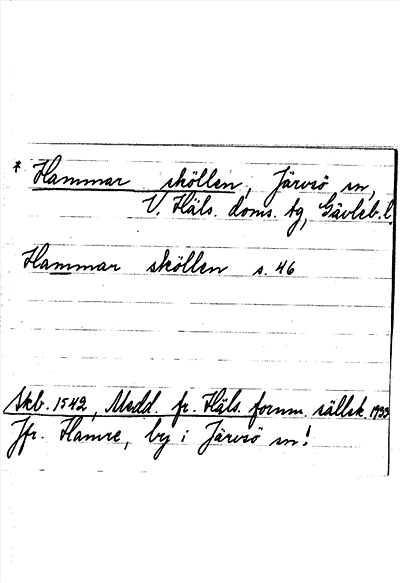 * Hammar sköllen, Järvsö sn,
V. Häls. doms. tg, Gävleb. l.
Hammar sköllen s. 46
Skb. 1542, Medd. fr. Häls. fornm. sällsk. 1933
Jfr. Hamre, by i Järvsö sn!